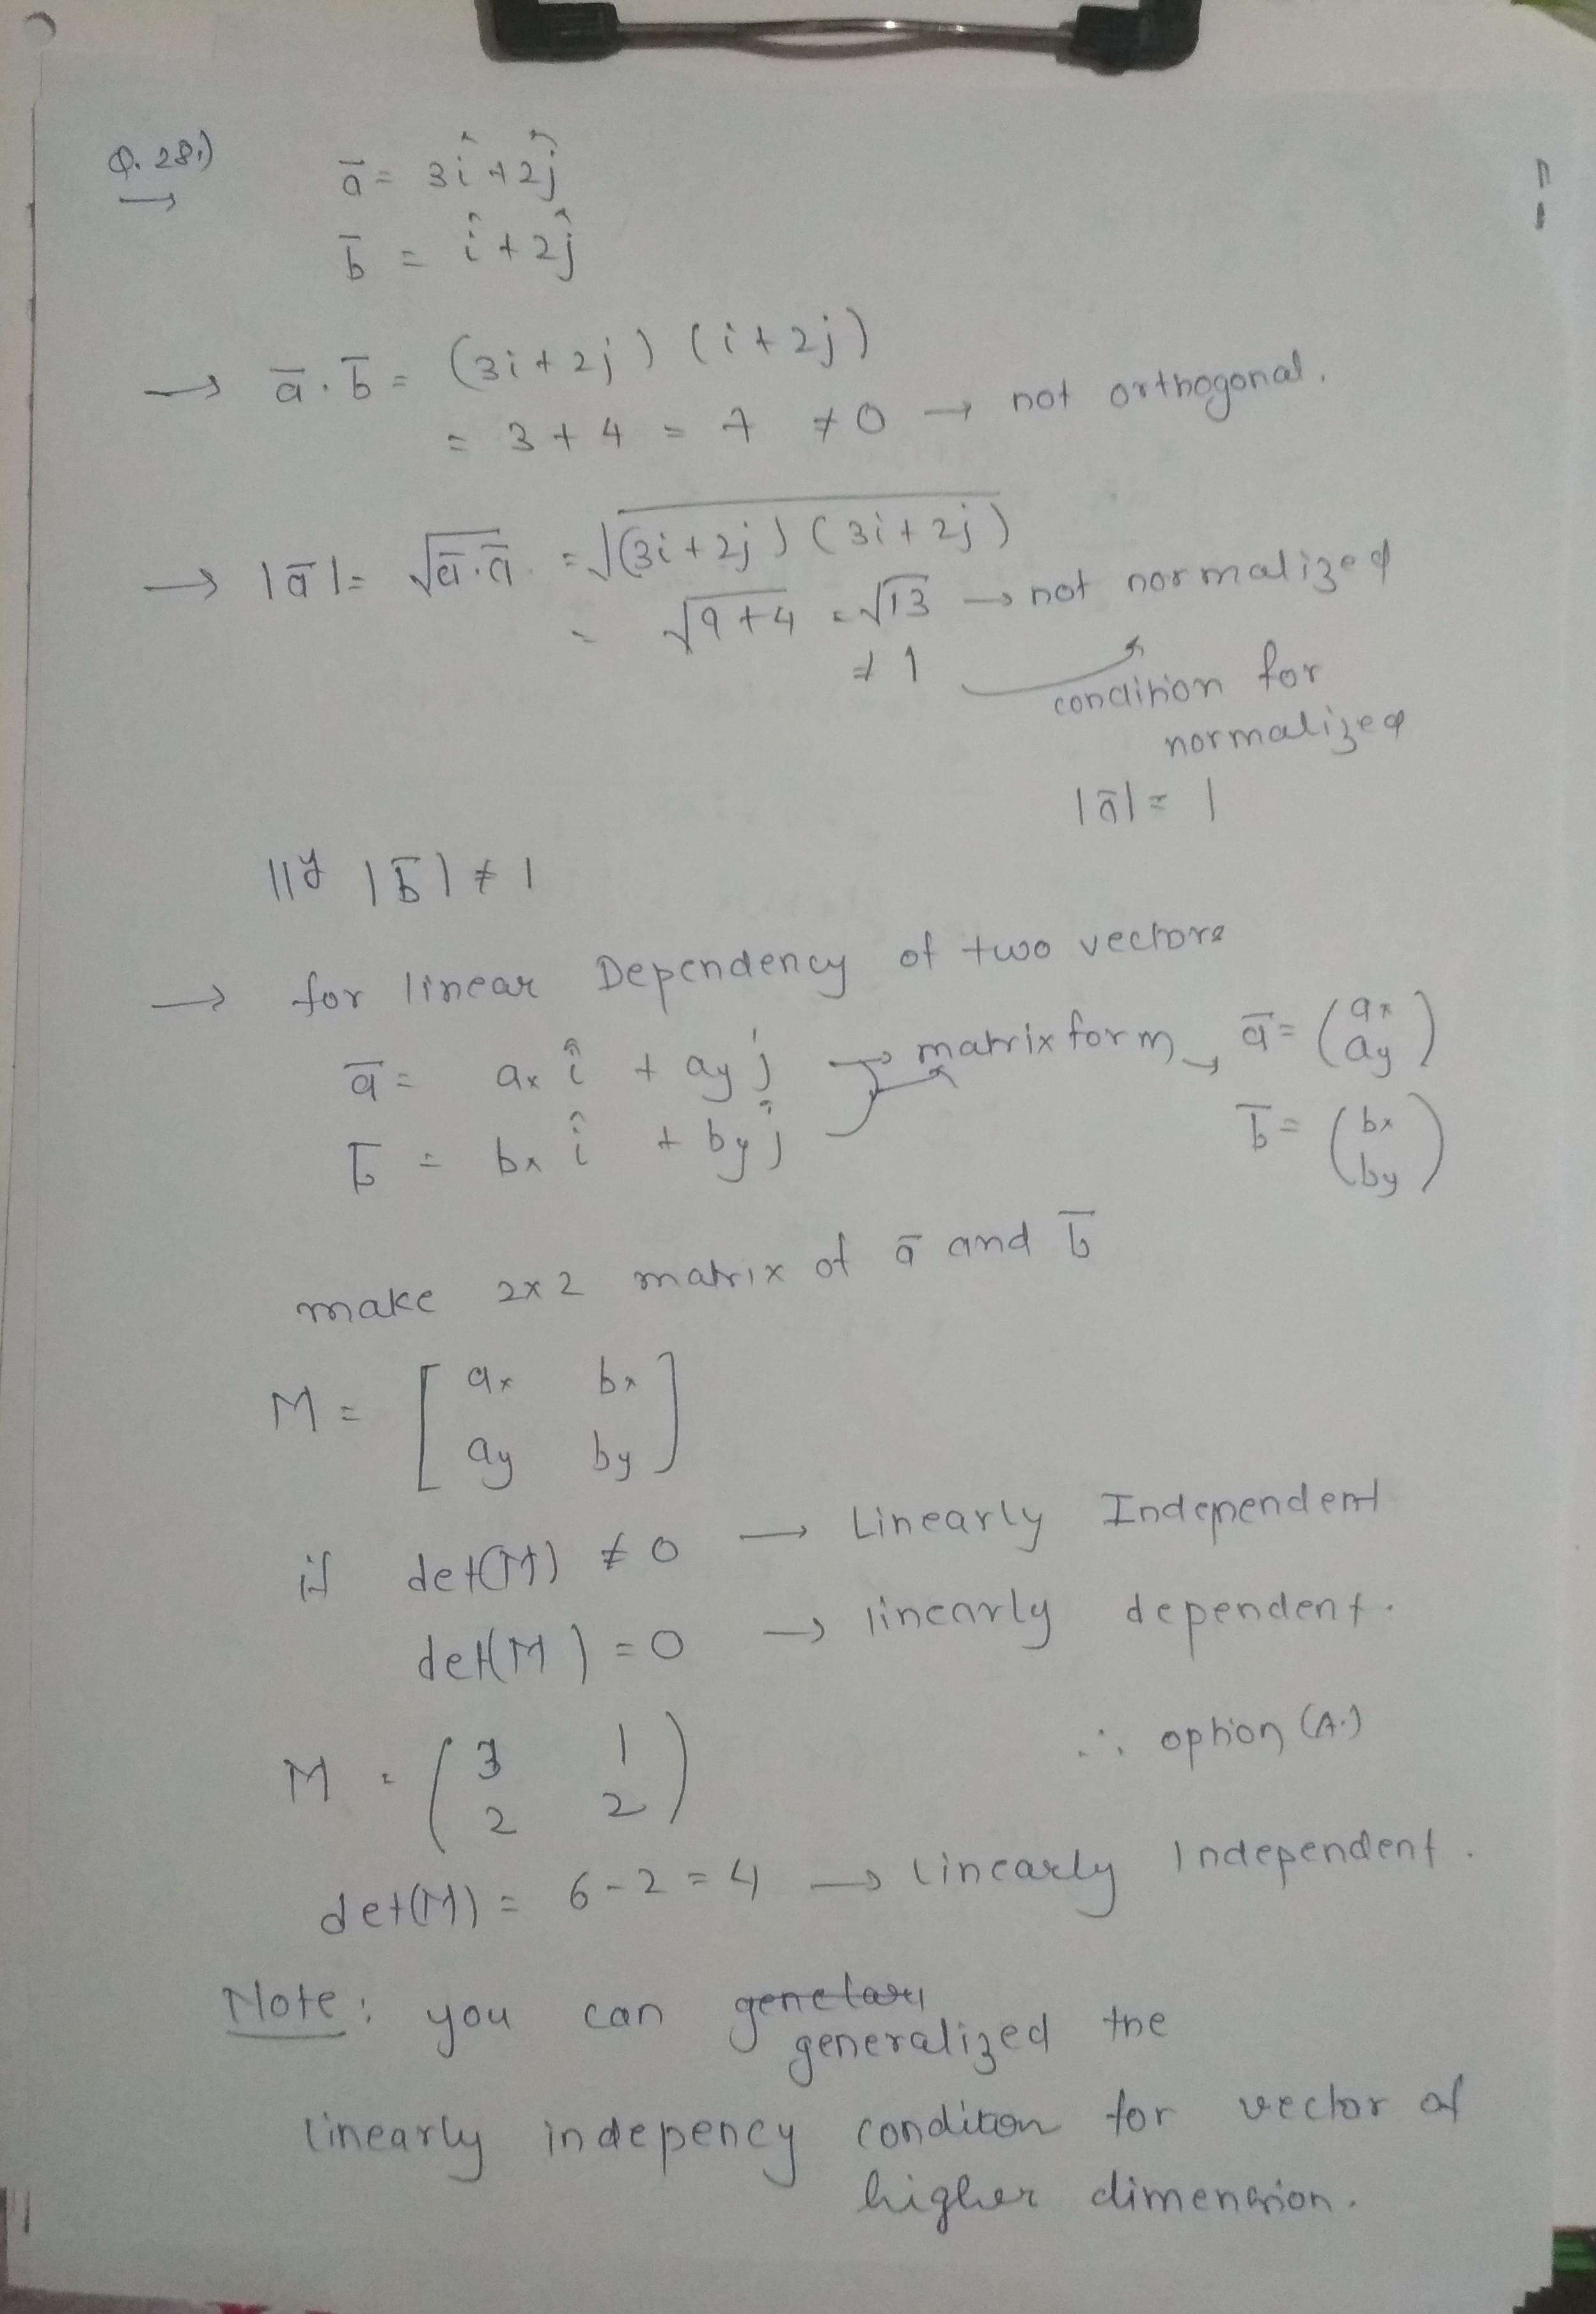 Q. 28.)
ā = 3î + 2ĵ
b̄ = î + 2ĵ
→ ā . b̄ = (3i + 2j) (i + 2j)
= 3 + 4 = 7 ≠ 0 → not orthogonal.
→ |ā| = √ā.ā = √(3i + 2j) (3i + 2j)
= √9+4 = √13 → not normalized
≠ 1
condition for
normalized
|ā| = 1
|||y |b̄| ≠ 1
→ for linear Dependency of two vectors
ā = ax î + ay ĵ → matrix form → ā = (ax ay)
b̄ = bx î + by ĵ b̄ = (bx by)
make 2x2 matrix of ā and b̄
M = [ax bx
ay by]
if det(M) ≠ 0 → Linearly Independent
det(M) = 0 → linearly dependent.
∴ option (A.)
M = (3 1
2 2)
det(M) = 6 - 2 = 4 → linearly Independent.
Note: you can
generalized the
linearly indepency condition for vector of
higher dimension.